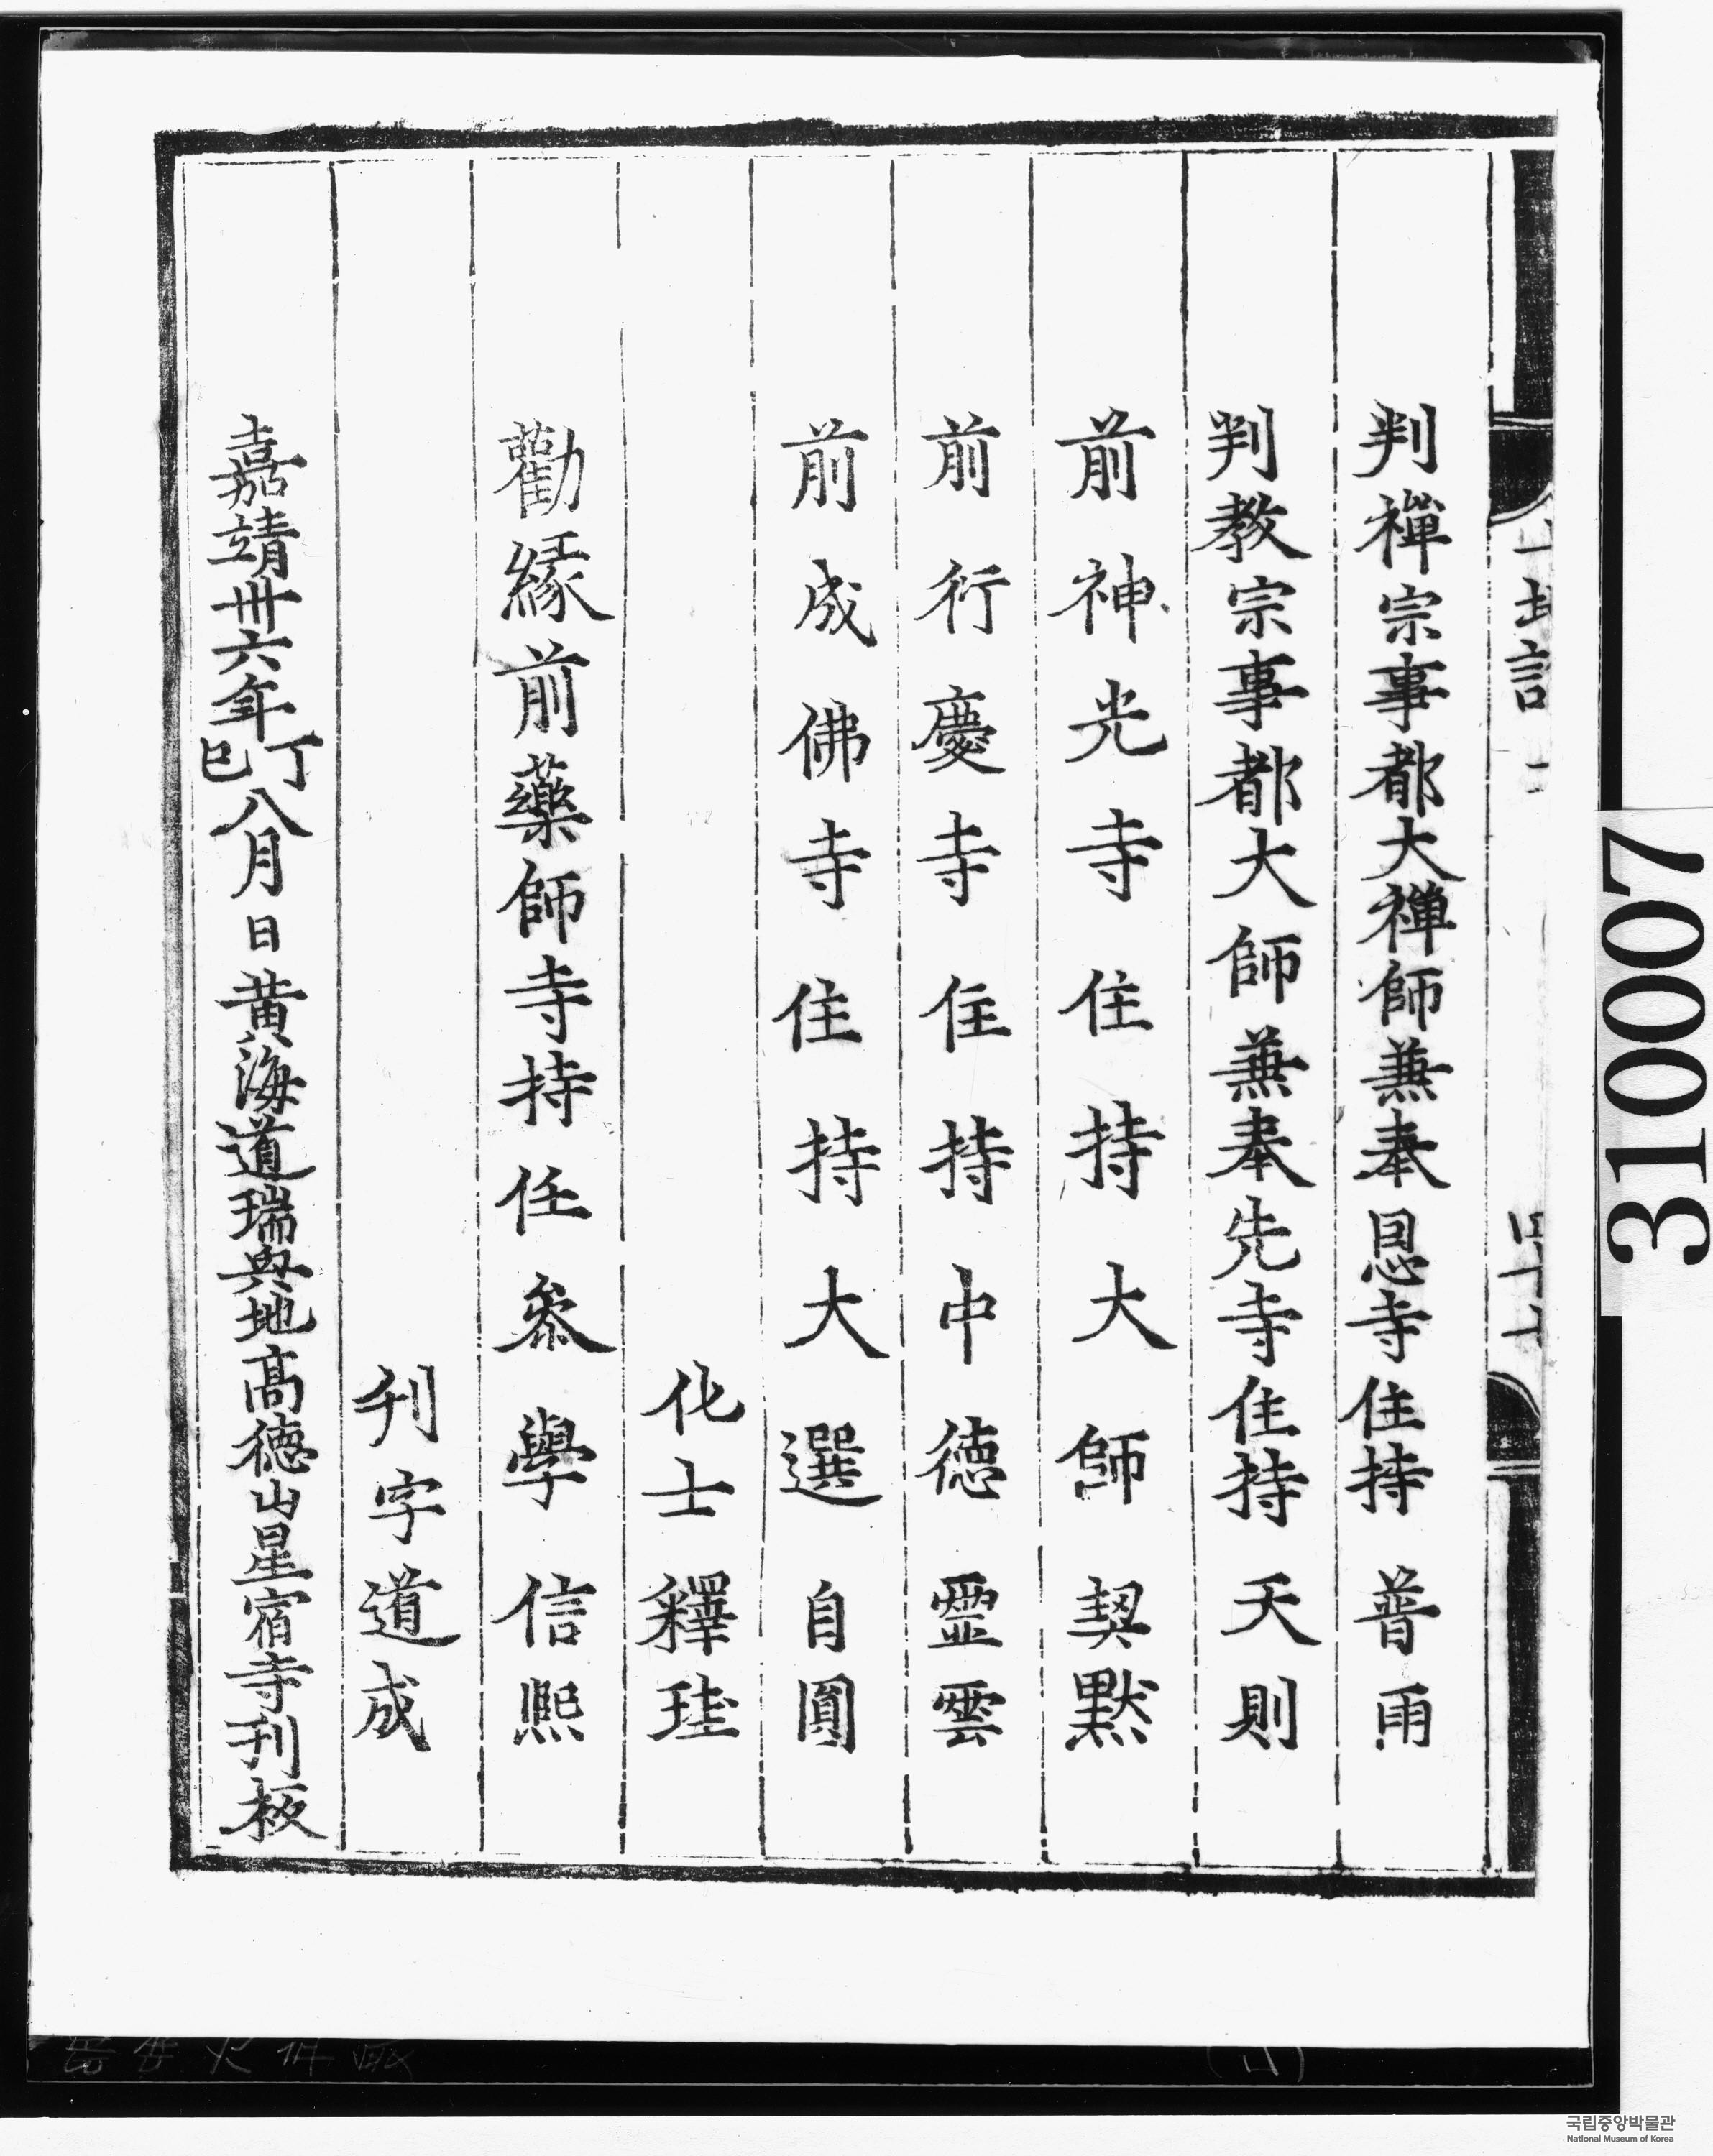 判禪宗事都大禪師兼奉恩寺住持 普雨
判敎宗事都大師兼奉先寺住持 天則
前神光寺住持大師 契默
前行慶寺住持中德 靈雲
前成佛寺住持大選 自圓
化士釋珪
勸緣前藥師寺持任叅學信熙
刋字道成
嘉靖卅六年丁巳八月日黃海道瑞興地高德山星宿寺刋板
310007
국립중앙박물관
National Museum of Korea